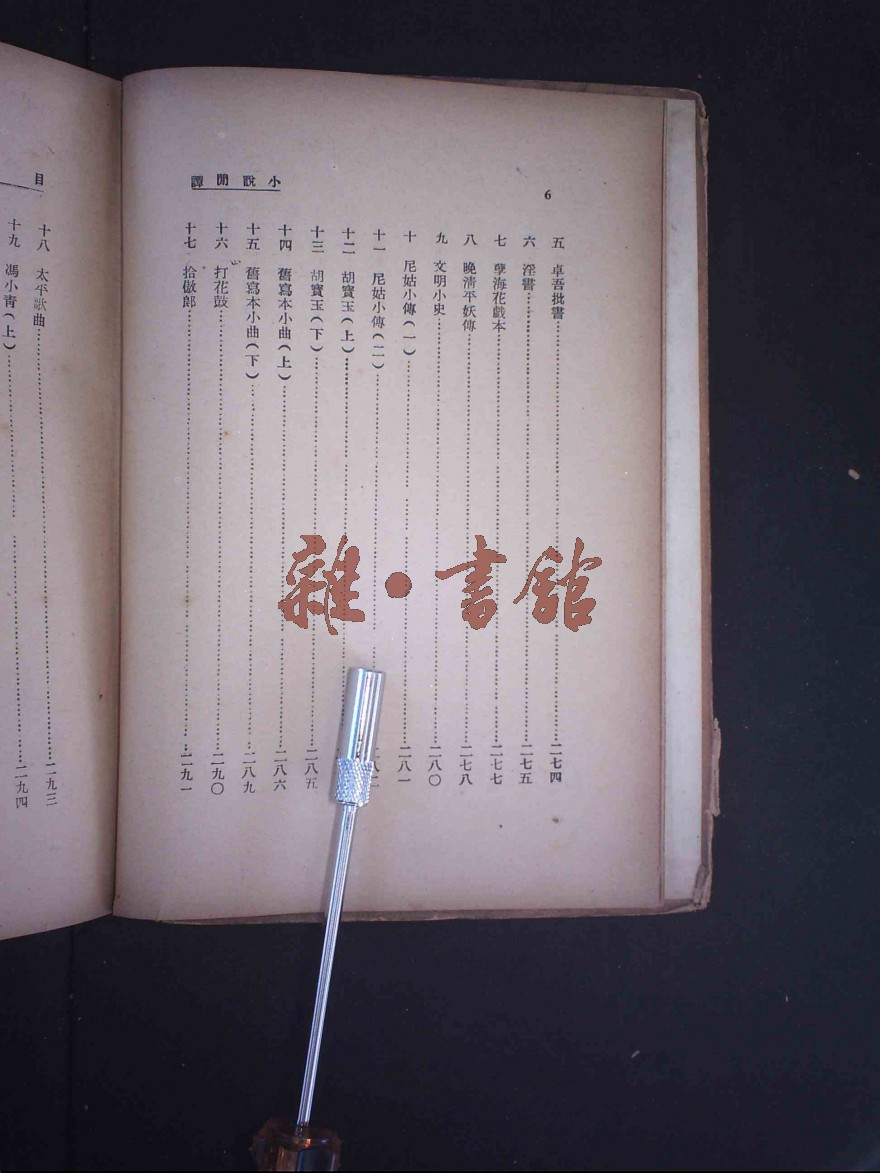 小說閒譚
6
五　卓吾批書……二七四
六　淫書……二七五
七　孽海花戲本……二七七
八　晚清平妖傳……二七八
九　文明小史……二八〇
十　尼姑小傳（一）……二八一
十一　尼姑小傳（二）……
十二　胡寶玉（上）……
十三　胡寶玉（下）……二八五
十四　舊寫本小曲（上）……二八六
十五　舊寫本小曲（下）……二八九
十六　打花鼓……二九〇
十七　拾倣郎……二九一
目
十八　太平歌曲……二九三
十九　馮小青（上）……二九四
雜·書館